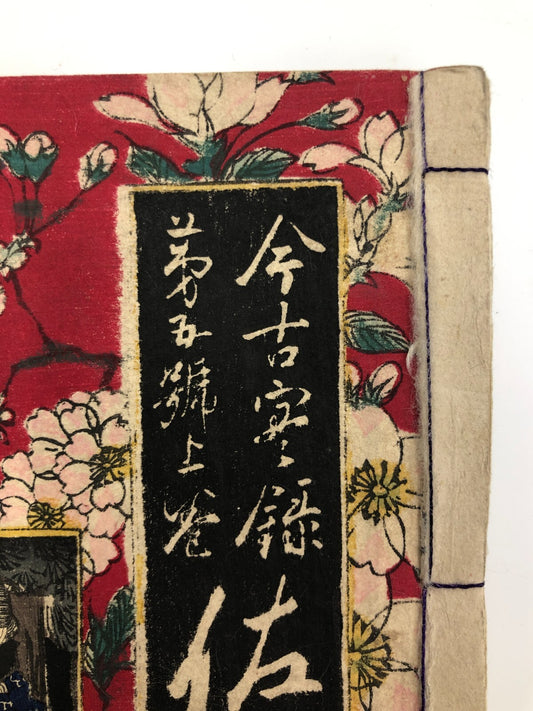 今古実録
第五號上巻
佐